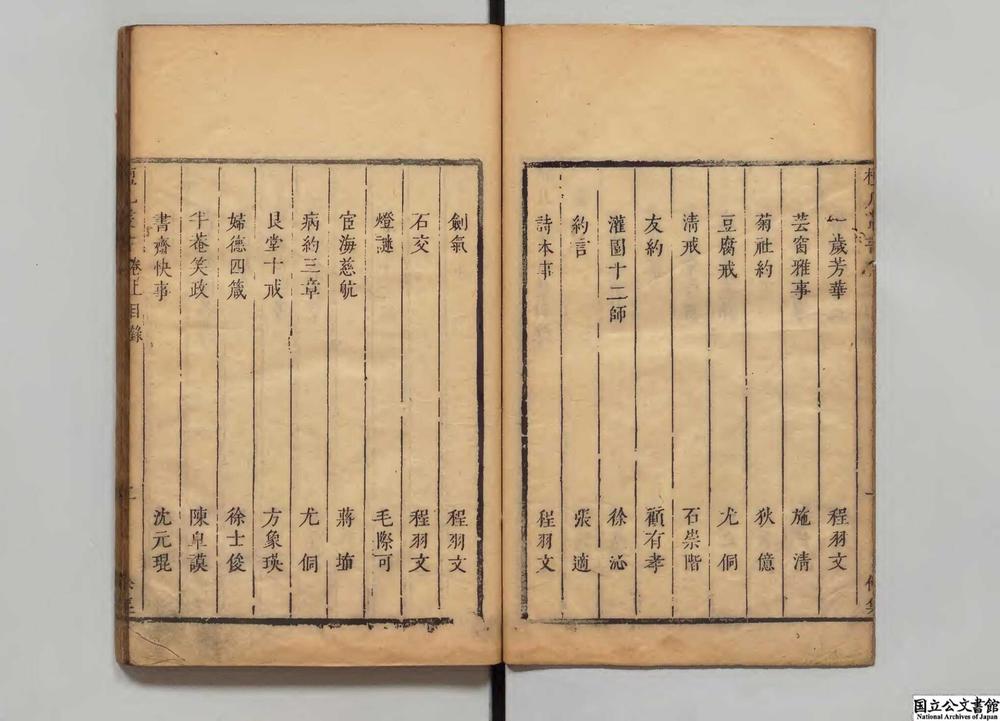 一歲芳華 程羽文
芸窗雅事 施清
菊社約 狄億
豆腐戒 尤侗
清戒 石崇階
友約 顧有孝
灌園十二師 徐沁
約言 張適
詩本事 程羽文
劍氣 程羽文
石交 程羽文
燈謎 毛際可
宦海慈航 蔣埴
病約三章 尤侗
艮堂十戒 方象瑛
婦德四箴 徐士俊
半菴笑政 陳皋謨
書齋快事 沈元琨
卷上目錄
国立公文書館
National Archives of Japan